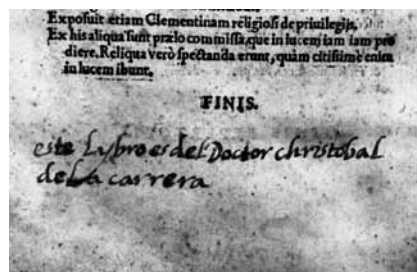 Exposuit etiam Clementinam religiosi de priuilegijs.
Ex his aliqua sunt prælo commissa, que in lucem iam iam pro
diere. Reliqua verò spectanda erunt, quàm citissimè enim
in lucem ibunt.
FINIS.
este Lybro es del Doctor christobal
de La carrera